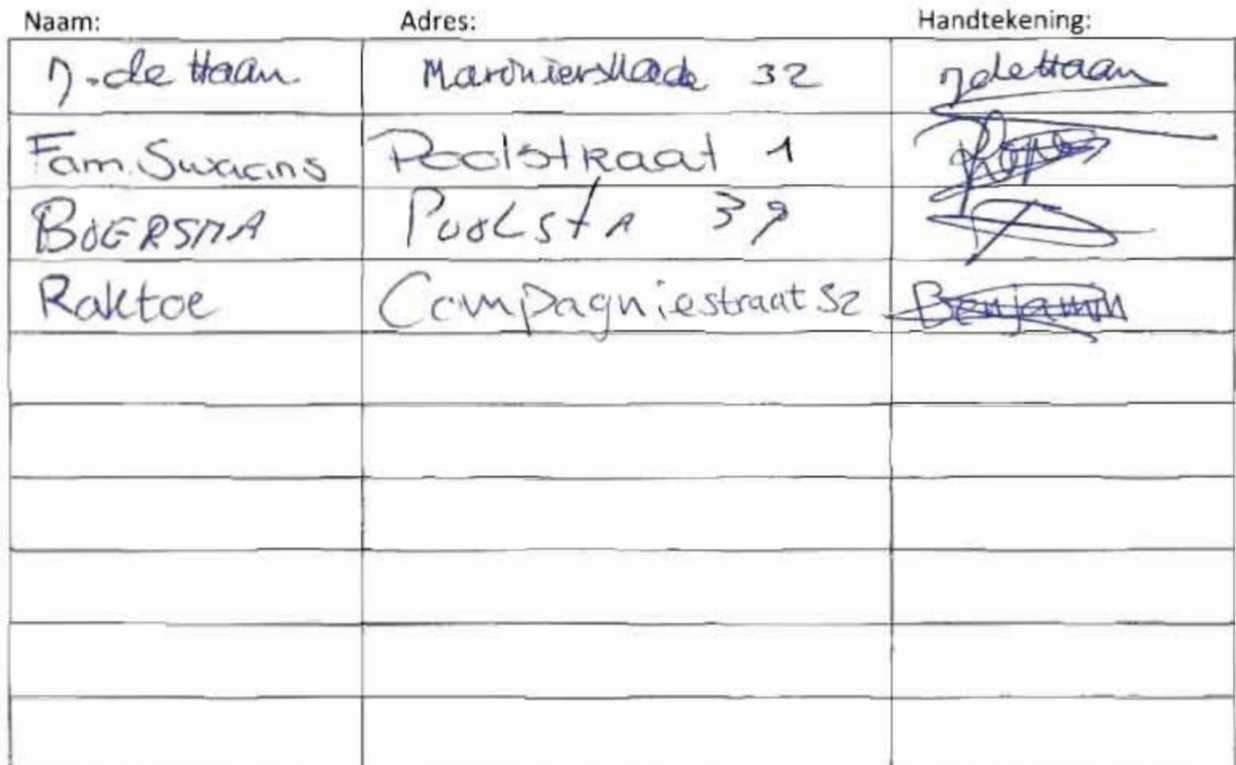 Naam: Adres: Handtekening:
J. de Haan. 32 J de Haan
Fam. Swaans Poolstraat 1
BOERSMA POOLSTR 39
Raktoe Compagniestraat 52 Benjamin